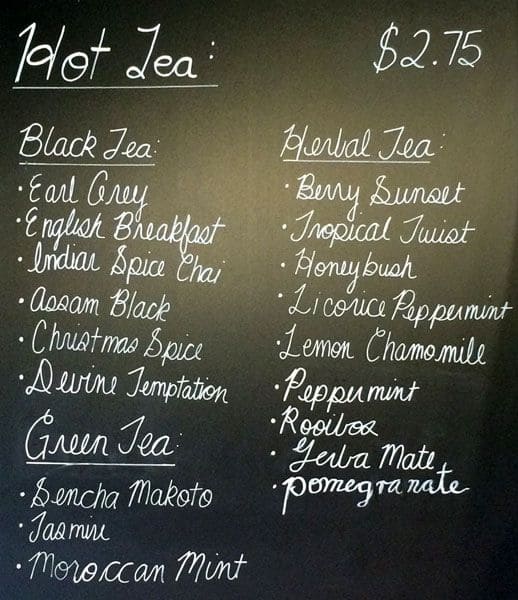 Hot Tea: $2.75
Black Tea:
· Earl Grey
· English Breakfast
· Indian Spice Chai
· Assam Black
· Christmas Spice
· Devine Temptation
Green Tea:
· Sencha Makoto
· Jasmine
· Moroccan Mint
Herbal Tea:
· Berry Sunset
· Tropical Twist
· Honeybush
· Licorice Peppermint
· Lemon Chamomile
· Peppermint
· Rooibos
· Yerba Mate
· pomegranate